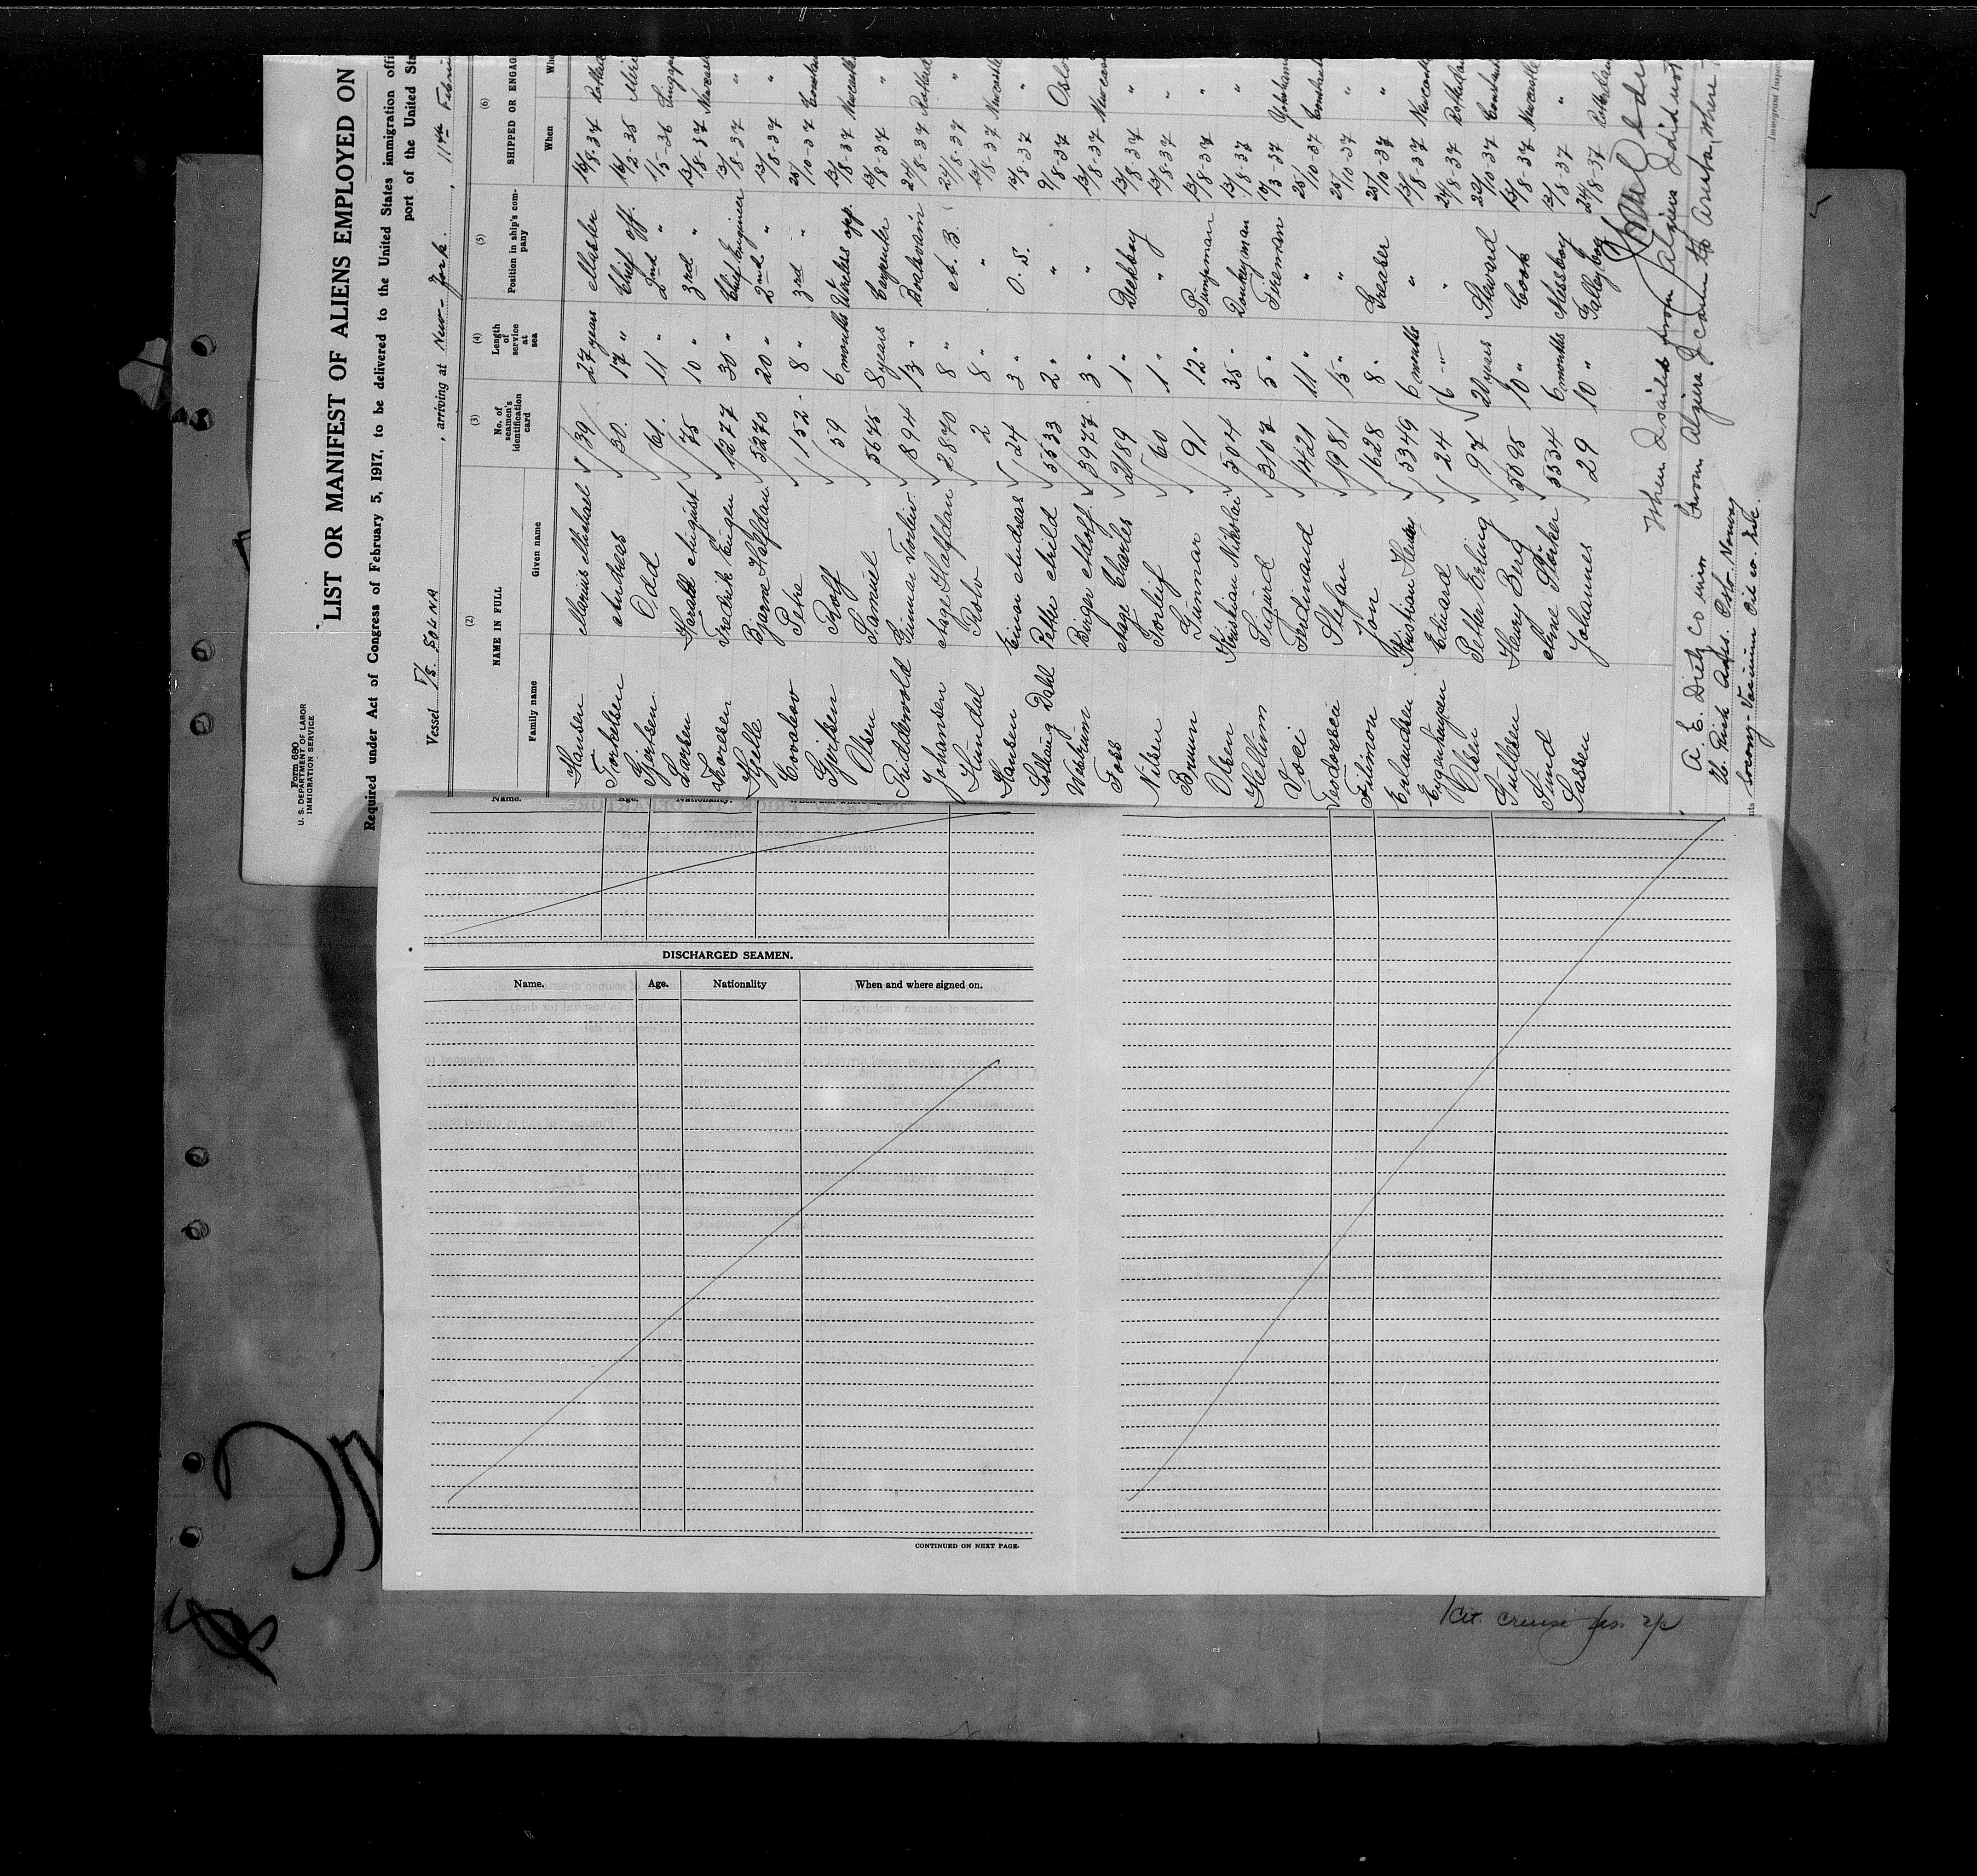 Form 680
U. S. DEPARTMENT OF LABOR
IMMIGRATION SERVICE
LIST OR MANIFEST OF ALIENS EMPLOYED ON
Required under Act of Congress of February 5, 1917, to be delivered to the United States immigration offi
port of the United Sta
Vessel T/S. SOLNA, arriving at New-York., 11th Febru
(2) (3) (4) (5) (6)
NAME IN FULL No. of seamen's identification card Length of service at sea Position in ship's company SHIPPED OR ENGAG
Family name Given name When Whe
Hansen Marius Michael 139 27 years Master 16/8-37
Andreas 30. 17 " Chief off. 16/12-35
Gjertsen Odd 61. 11 " 2nd " 1/5-36
Larsen Harald August 75 10 " 3rd " 13/8-37 Newcastl
Thoresen Fredrik Eugen 1277 30 " Chief Engineer 13/8-37 "
Kjelle Bjarne Halfdan 5270 20 " 2nd " 13/8-37 "
Covaleov Petre 152 8 " 3rd " 25/10-37 Constan
Gjertsen Rolf 59 6 months Wireless opp. 13/8-37 Newcastle
Olsen Samuel 5645 8 years Carpenter 13/8-37 "
Riddervold Gunnar Torleiv 894 13 " Boatswain 24/8-37 Rotterd
Johansen Aage Halfdan 2870 8 " A. B. 24/8-37 "
Hundal Rolv 2 8 " " 13/8-37 Newcastle
Hansen Einar Andreas 24 3 " O. S. 13/8-37 "
Solhaug Dahl Petter Arild 5533 2 " " 9/8-37 Oslo
Westrum Birger Adolf 3977 3 " " 13/8-37 Newcas
Foss Aage Charles 2189 1 " Deckboy 13/8-37 "
Nilsen Torleif 60 1 " " 13/8-37 "
Bruun Gunnar 91 12 " Pumpman 13/8-37 "
Olsen Kristian Nikolai 304 35 " Donkeyman 13/8-37 "
Hellum Sigurd 3107 5 " Fireman 13/3-37
Voci Ferdinand 1421 11 " " 25/10-37 Constant
Teodorescu Stefan 1981 15 " " 25/10-37 "
Filimon Jon 1628 8 " Greaser 25/10-37 "
Erlandsen Kristian 5349 6 months " 13/8-37 Newcastle
Eduard 24 6 " " 24/8-37 Rotterdam
Olsen Petter Erling 97 20 years Steward 20/10-37 Constan
Gullesen Henry Berg 5095 10 " Cook 13/8-37 Newcastle
Sund Arne Sterker 5534 6 months Messboy 13/8-37 "
Sassen Johannes 29 10 " Galley boy 24/8-37 Rotterdam
When I sailed from Algiers I did not
from Algiers I came to Aruba, where
A. E. Dietz Co
Adr. Oslo Norway
Socony-Vacuum Oil co. Inc.
Immigrant Inspec
Name. Age. Nationality.
DISCHARGED SEAMEN.
Name. Age. Nationality When and where signed on.
CONTINUED ON NEXT PAGE.